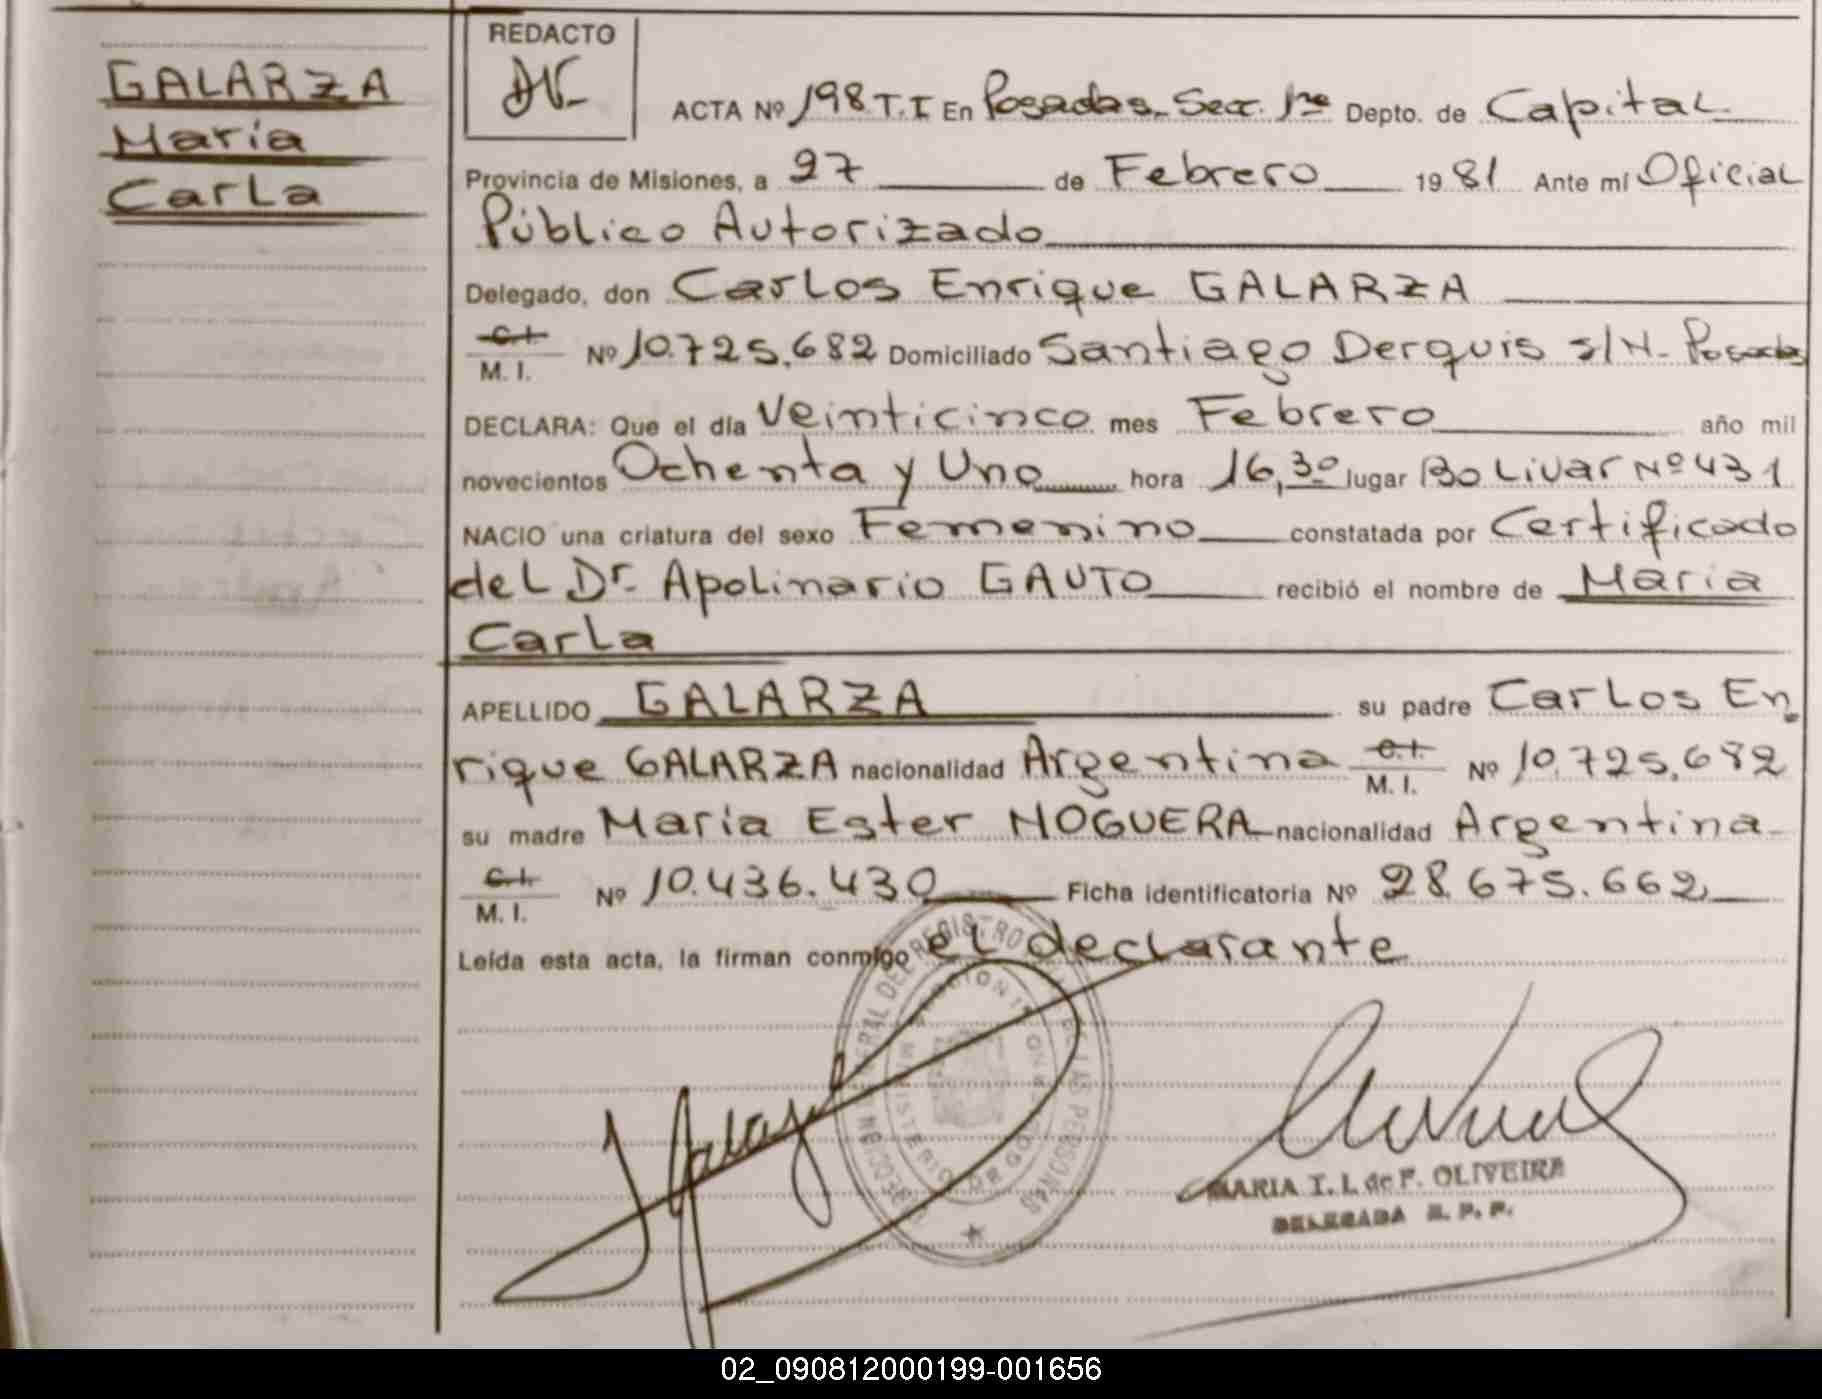 GALARZA
María
Carla
REDACTO
ACTA Nº 198 T. I En Posadas. Secc. 1ra Depto. de Capital
Provincia de Misiones, a 27 de Febrero 19 81 Ante mí Oficial
Público Autorizado
Delegado, don Carlos Enrique GALARZA
C.I.
M. I. Nº 10.725.682 Domiciliado Santiago Derquis s/N. Posadas
DECLARA: Que el día Veinticinco mes Febrero año mil
novecientos Ochenta y Uno hora 16,30 lugar Bolivar Nº 431
NACIO una criatura del sexo Femenino constatada por Certificado
del Dr. Apolinario GAUTO recibió el nombre de María
Carla
APELLIDO GALARZA su padre Carlos En
rique GALARZA nacionalidad Argentina C.I. Nº 10.725.682
M. I.
su madre María Ester NOGUERA nacionalidad Argentina
C.I.
M. I. Nº 10.436.430 Ficha identificatoria Nº 28.675.662
Leída esta acta, la firman conmigo el declarante
MARIA T. L. de F. OLIVEIRA
DELEGADA R. P. P.
02_090812000199-001656